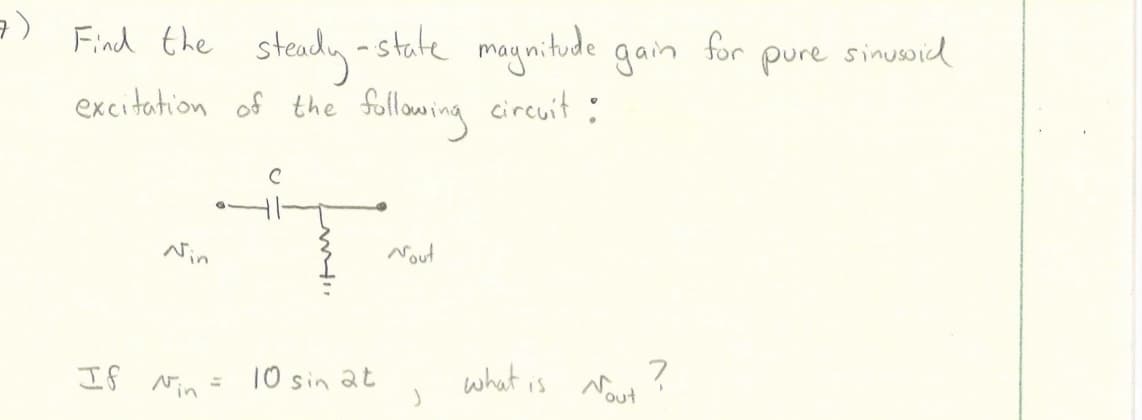 7) Find the steady-state magnitude gain for pure sinusoid
excitation of the following circuit :
C
Vin
Vout
If Vin = 10 sin 2t , what is Vout ?